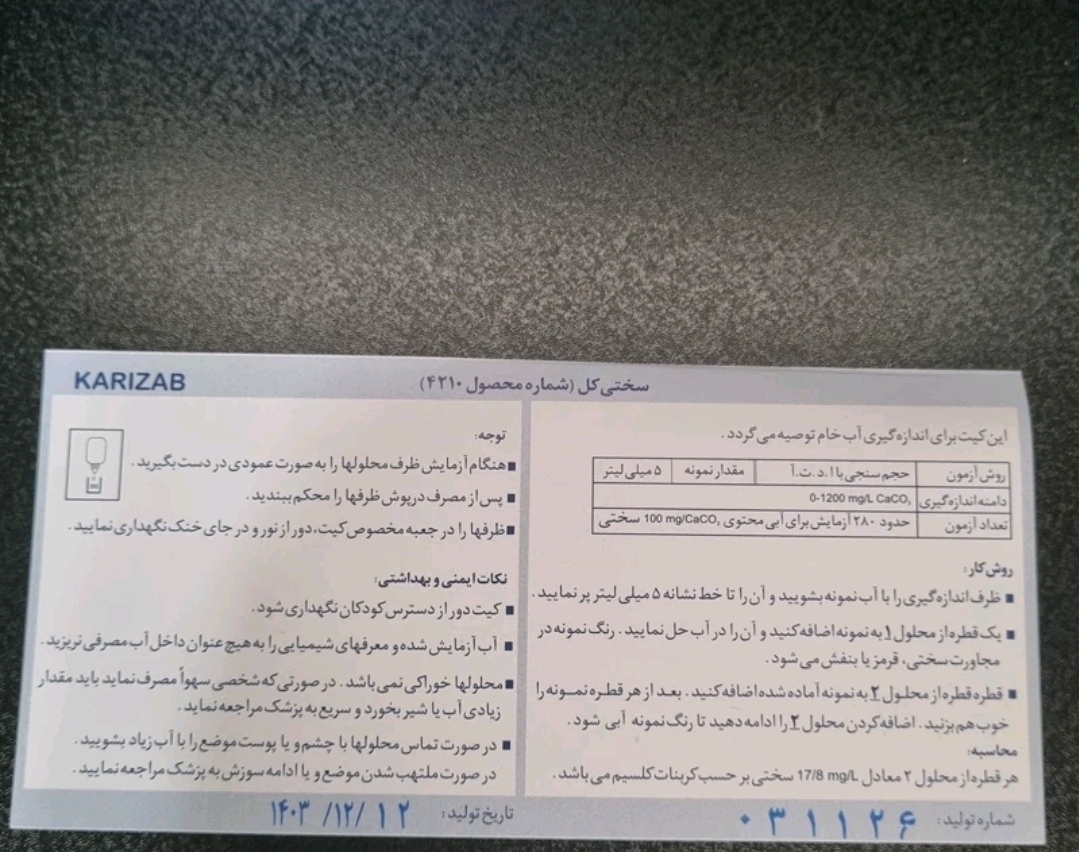 KARIZAB
سختی کل (شماره محصول ۴۲۱۰)
این کیت برای اندازه‌گیری آب خام توصیه می‌گردد.
روش آزمون حجم سنجی با ا.د.ت.آ مقدار نمونه ۵ میلی لیتر
دامنه اندازه‌گیری 0-1200 mg/L CaCO₃
تعداد آزمون حدود ۲۸۰ آزمایش برای آبی محتوی 100 mg/CaCO₃ سختی
روش کار:
■ ظرف اندازه‌گیری را با آب نمونه بشویید و آن را تا خط نشانه ۵ میلی لیتر پر نمایید.
■ یک قطره از محلول ۱ به نمونه اضافه کنید و آن را در آب حل نمایید. رنگ نمونه در
مجاورت سختی، قرمز یا بنفش می شود.
■ قطره قطره از محلول ۲ به نمونه آماده شده اضافه کنید. بعد از هر قطره نمونه را
خوب هم بزنید. اضافه کردن محلول ۲ را ادامه دهید تا رنگ نمونه آبی شود.
محاسبه:
هر قطره از محلول ۲ معادل 17/8 mg/L سختی بر حسب کربنات کلسیم می باشد.
شماره تولید: ۰۳۱۱۲۶
توجه:
■ هنگام آزمایش ظرف محلولها را به صورت عمودی در دست بگیرید.
■ پس از مصرف درپوش ظرفها را محکم ببندید.
■ ظرفها را در جعبه مخصوص کیت، دور از نور و در جای خنک نگهداری نمایید.
نکات ایمنی و بهداشتی:
■ کیت دور از دسترس کودکان نگهداری شود.
■ آب آزمایش شده و معرفهای شیمیایی را به هیچ عنوان داخل آب مصرفی نریزید.
■ محلولها خوراکی نمی باشد. در صورتی که شخصی سهواً مصرف نماید باید مقدار
زیادی آب یا شیر بخورد و سریع به پزشک مراجعه نماید.
■ در صورت تماس محلولها با چشم و یا پوست موضع را با آب زیاد بشویید.
در صورت ملتهب شدن موضع و یا ادامه سوزش به پزشک مراجعه نمایید.
تاریخ تولید: ۱۴۰۳/۱۲/۱۲